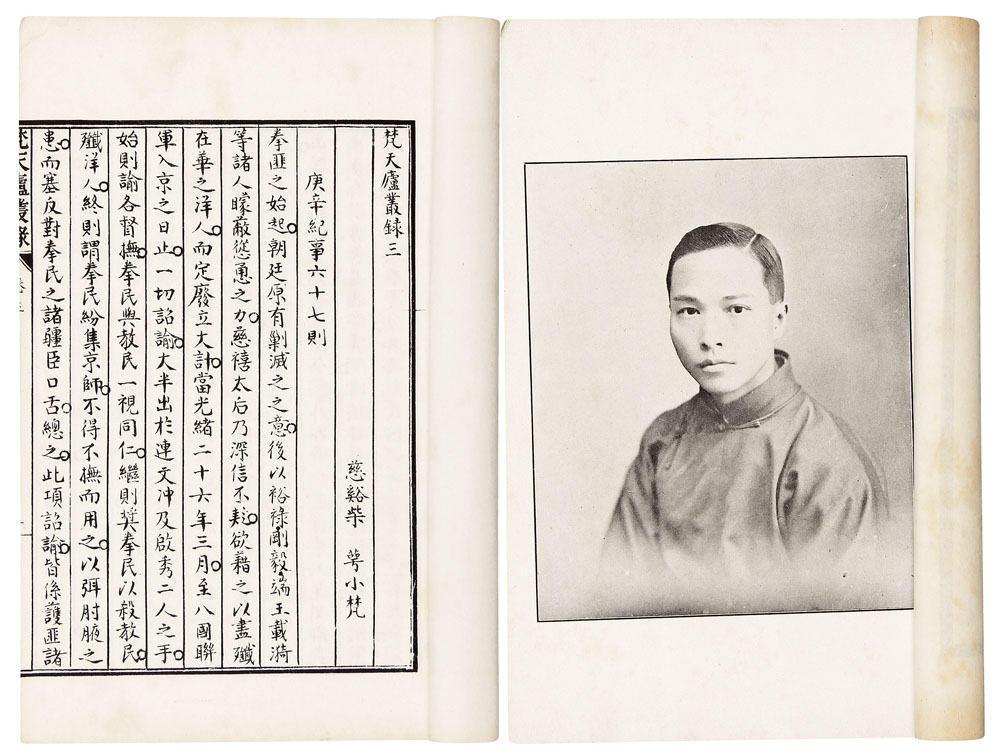 梵天廬叢録三
慈谿柴 萼小梵
庚辛紀事六十七則
拳匪之始起。朝廷原有剿滅之之意。後以裕祿剛毅端王載漪
等諸人矇蔽慫恿之力。慈禧太后乃深信不疑。欲藉之以盡殲
在華之洋人。而定廢立大計。當光緒二十六年三月。至八國聯
軍入京之日止。一切詔諭。大半出於連文冲及啟秀二人之手。
始則諭各督撫。拳民與教民一視同仁。繼則奨拳民以殺教民。
殲洋人。終則謂拳民紛集京師。不得不撫而用之。以弭肘腋之
患。而塞反對拳民之諸疆臣口舌。總之。此項詔諭。皆係護匪諸
梵天廬叢録